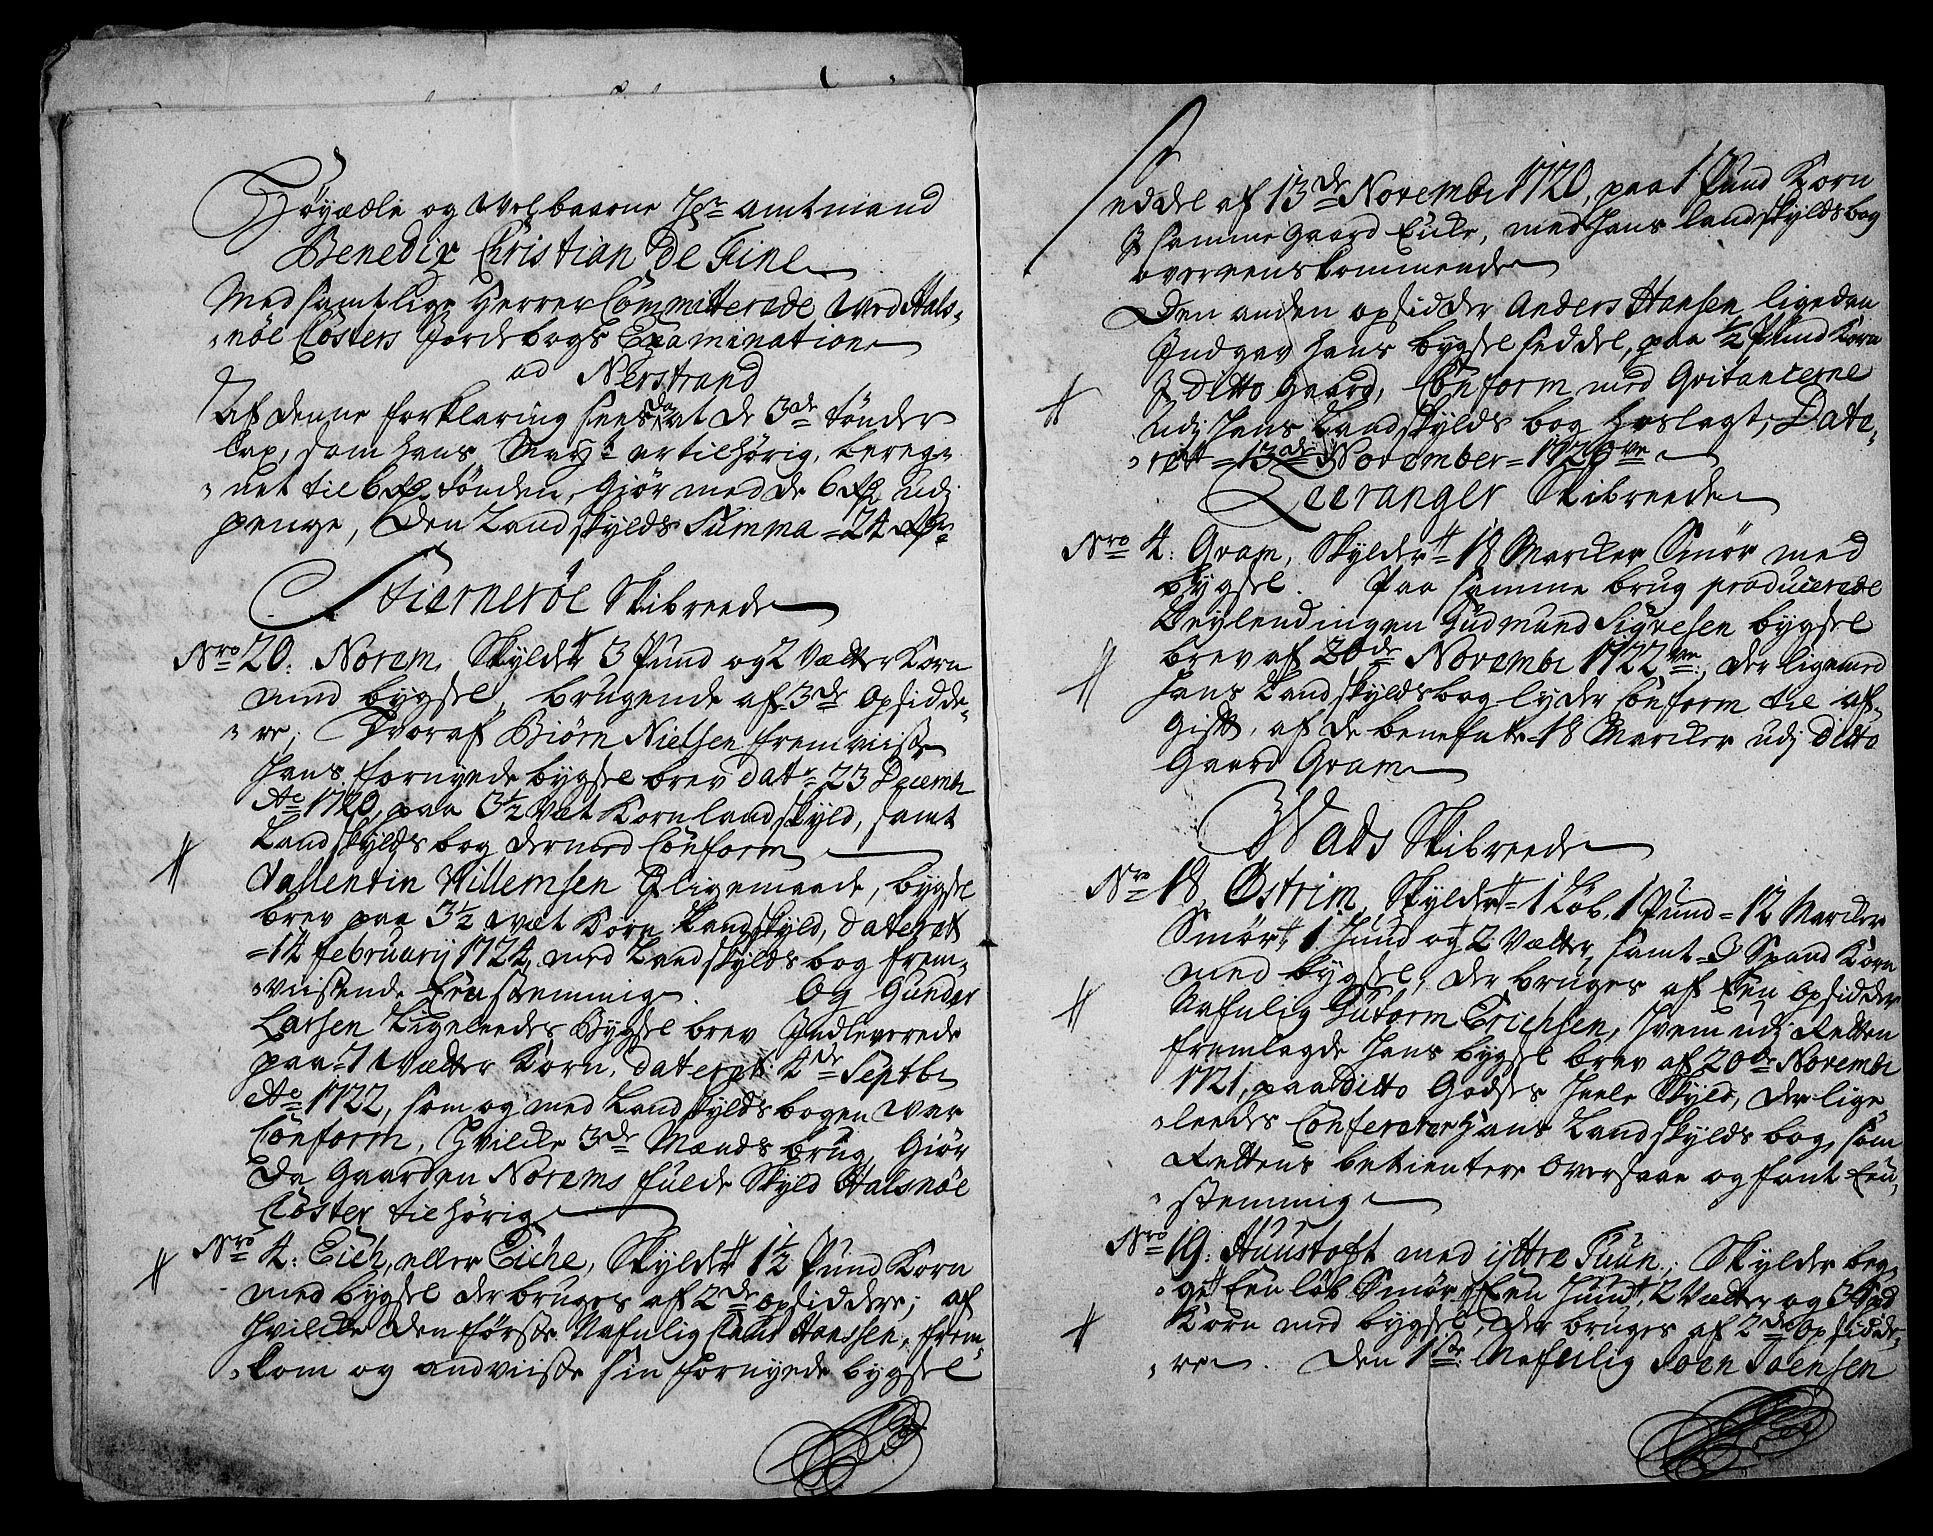 Høyædle og Welbaarne Hr amtmand
Benedix Christian De Fine
Med samtlige Herrer Committerede Wed Hals-
nøe Closters Jordebogs Examination
ad Nerstrand
Af denne forklaring sees da at de 3de tønder
lax, som hans May.t er tilhörig, bereg-
net til 6 tönden, Giör med de 6 udj
penge, Den Landskylds Summa = 24
Stiernerøe Skibreede
Nro 20. Norem, Skylder 3 Pund og 2 Vætter Korn
med bygsel, brugende af 3de Opsidde-
re; Hvoraf Biørn Nielsen fremviiste
hans fornyede bygsel brev dat. 23 Decemb:
Ao 1720, paa 3½ Væt Korn landskyld, samt
Landskylds bog dermed Conform
Vallentin Willemsen J ligemaade, bygsel
brev paa 3½ Væt Korn Landskyld, daterit
14 februarij 1724, med Landskylds bog frem-
viisende Eenstemmig. Og Gunder
Larsen Ligeleedes Bygsel brev Indleverede
paa 7 Vætter Korn, daterit 4de Septb:
Ao 1722, som og med Landskylds bogen var
Conform, Hvilcke 3de Mænds brug, Giör
da Gaarden Norems fulde Skyld Halsnöe
Closter tilhörig
Nro 4: Eich, eller Eiche, Skylder 1½ Pund Korn
med bygsel der bruges af 2de opsiddere; af
hvilcke den förste Nafnlig Hanssen, frem-
kom og andviiste sin fornyede bygsel
seddel af 13de Novembr 1720, paa 1 Pund Korn
J samme gaard Eicke, med hans landskylds bog
overeenskommende
Den anden opsidder Anders Hansen ligedan
Indgav hans bygsel seddel, paa ½ Pund Korn
J ditto Gaard, Conform med Qvitancerne
udj hans Landskylds bog hoslagt, Date-
rit 13de November 1720
Leeranger Skibreede
Nro 4: Gram, Skylder 18 Marcker Smör med
bygsel. Paa samme brug producerede
Leylendingen Gudmund Sigvesen bygsel
brev af 20de Novembr 1722, der ligemed
hans Landskylds bog lyder Conform til af-
gift, af de benefnte 18 Marcker udj ditto
Gaard Gram
Wads Skibreede
Nro 18, Østrim, Skylder 1 Löb, 1 Pund 12 Marcker
Smör, 1 Hund og 2 Vætter, samt Spand Korn
med bygsel, der bruges af Een Opsidder
Nafnlig Gutorm Erichsen, hvem udj Retten
fremlagde hans bygsel brev af 20de Novembr
1721, paa ditto Godses heele Skyld, der lige-
leedes Confererer hans Landskylds bog, som
Rettens betientere Oversaae og fant Een-
stemmig
Nro 19: Huustoft med ytre Tuun, Skylder beg-
ge Een löb Smör, Een Hund, 2 Vætter og 3 Spd
Korn med bygsel, der bruges af 2de Opsidde-
re. Den 1ste Nafnlig Soen Soensen